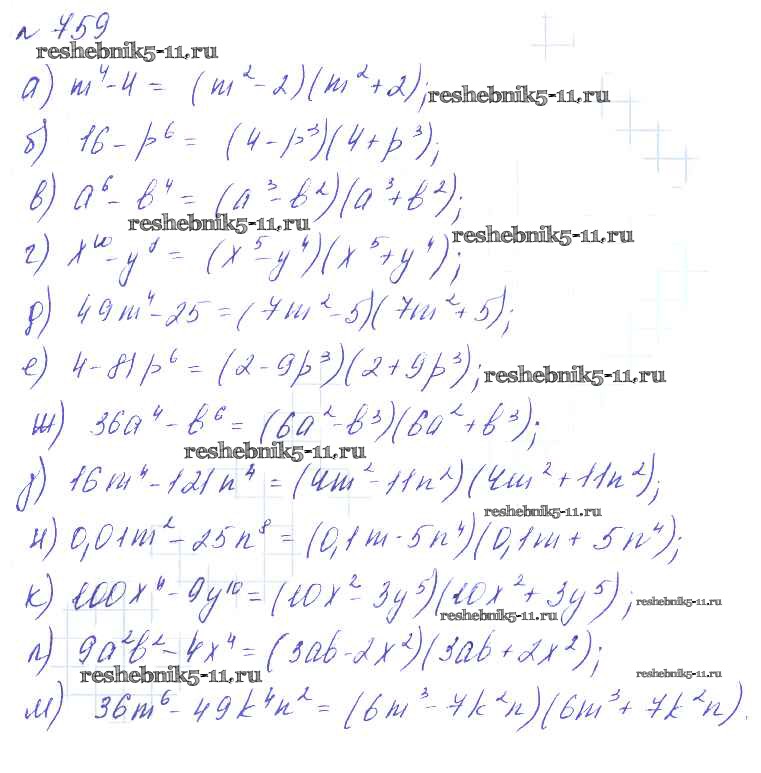 № 759
reshebnik5-11.ru
а) m⁴-4 = (m²-2)(m²+2);
reshebnik5-11.ru
б) 16-p⁶ = (4-p³)(4+p³);
в) a⁶-b⁴ = (a³-b²)(a³+b²);
reshebnik5-11.ru
reshebnik5-11.ru
г) x¹⁰-y⁸ = (x⁵-y⁴)(x⁵+y⁴);
д) 49m⁴-25 = (7m²-5)(7m²+5);
е) 4-81p⁶ = (2-9p³)(2+9p³);
reshebnik5-11.ru
ж) 36a⁴-b⁶ = (6a²-b³)(6a²+b³);
reshebnik5-11.ru
з) 16m⁴-121n⁴ = (4m²-11n²)(4m²+11n²);
reshebnik5-11.ru
и) 0,01m²-25n⁸ = (0,1m-5n⁴)(0,1m+5n⁴);
к) 100x⁴-9y¹⁰ = (10x²-3y⁵)(10x²+3y⁵);
reshebnik5-11.ru
reshebnik5-11.ru
л) 9a²b²-4x⁴ = (3ab-2x²)(3ab+2x²);
reshebnik5-11.ru
reshebnik5-11.ru
м) 36m⁶-49k⁴n² = (6m³-7k²n)(6m³+7k²n).